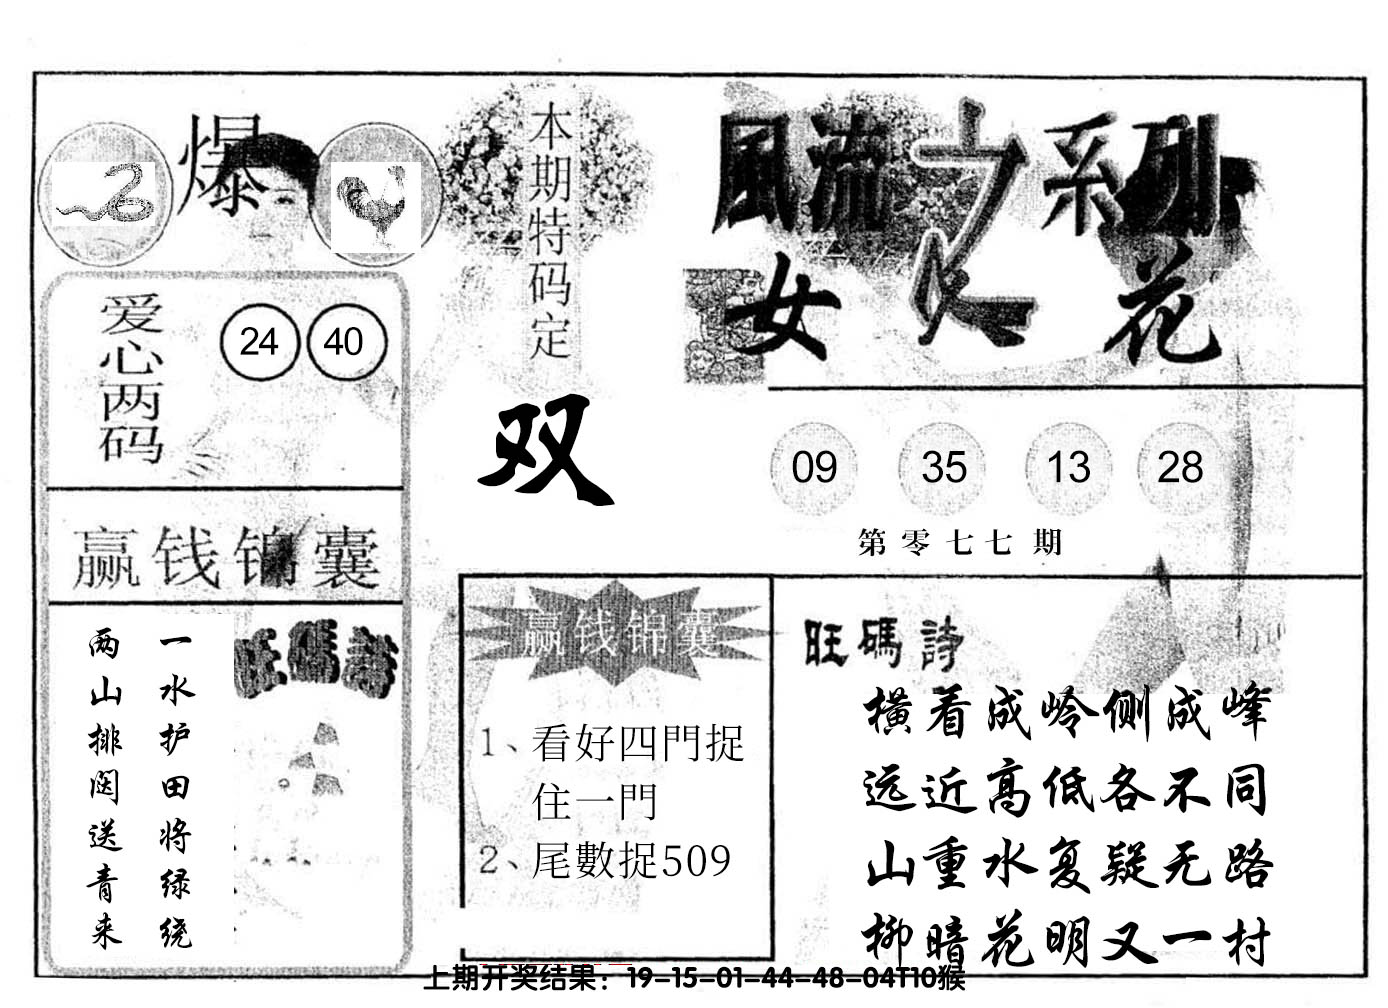 爆
本期特码定
双
風流之系列
女人花
爱心两码
24 40
09 35 13 28
第零七七期
赢钱锦囊
旺碼詩
一水护田将绿绕
两山排闼送青来
赢钱锦囊
1、看好四門捉
住一門
2、尾數捉509
旺碼詩
横看成岭侧成峰
远近高低各不同
山重水复疑无路
柳暗花明又一村
上期开奖结果：19-15-01-44-48-04T10猴